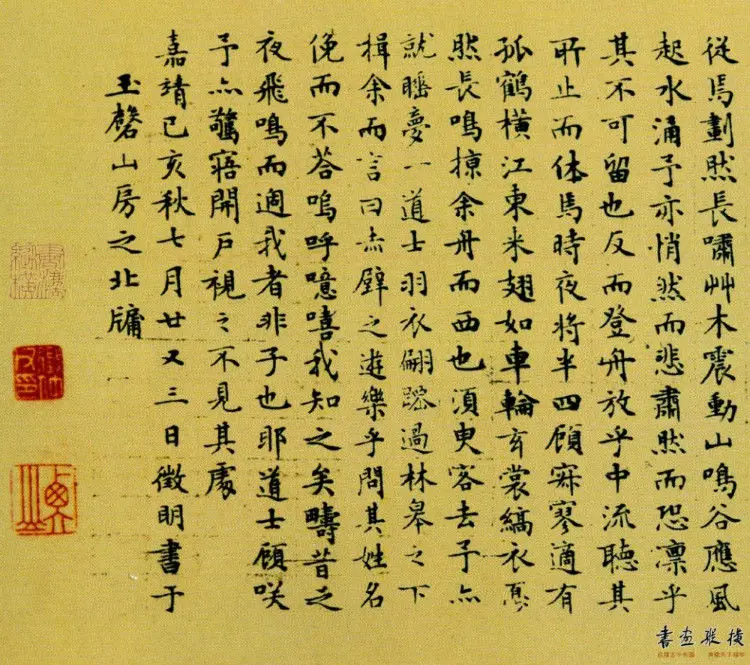 從焉劃然長嘯艸木震動山鳴谷應風
起水涌予亦悄然而悲肅然而恐凛乎
其不可留也反而登舟放乎中流聽其
所止而休焉時夜將半四顧寂寥適有
孤鶴橫江東來翅如車輪玄裳縞衣戛
然長鳴掠余舟而西也須臾客去予亦
就睡夢一道士羽衣翩躚過林皋之下
揖余而言曰赤壁之遊樂乎問其姓名
俛而不荅嗚呼噫嘻我知之矣疇昔之
夜飛鳴而過我者非子也耶道士顧咲
予亦驚寤開戶視之不見其處
嘉靖己亥秋七月廿又三日徵明書于
玉磬山房之北牖
書畫縱橫